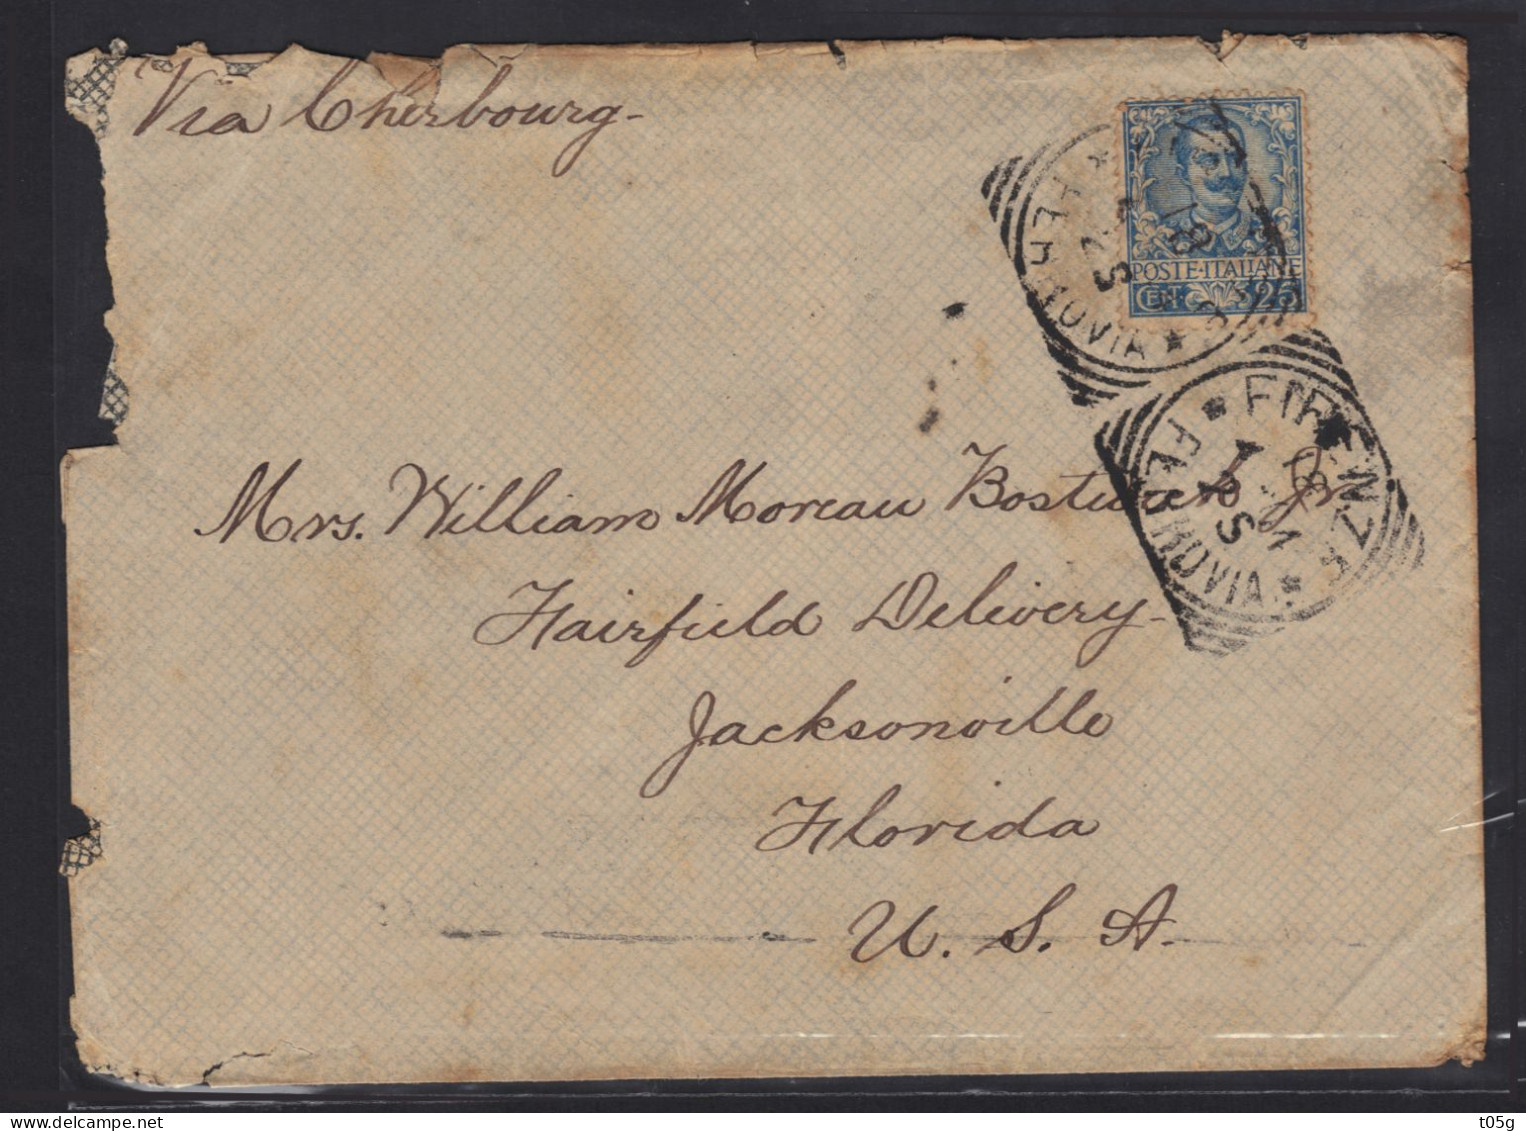 Via Cherbourg-
POSTE·ITALIANE
CENT. 25
FERROVIA
FIRENZE
FERROVIA
Mrs. William Moreau Bostwick Jr
Fairfield Delivery-
Jacksonville
Florida
U. S. A.
delcampe.net
t05g